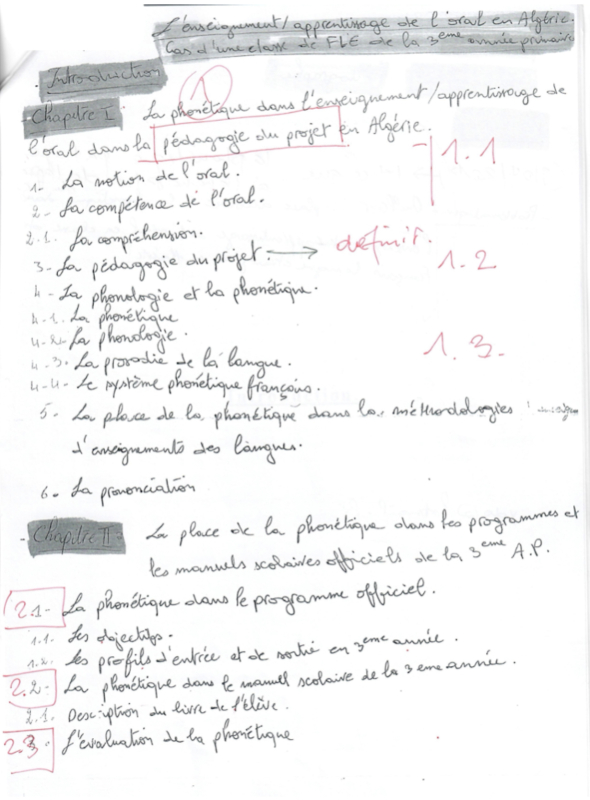 L'enseignement/apprentissage de l'oral en Algérie.
Cas d'une classe de FLE de la 3eme année primaire
- Introduction
1
- Chapitre I : La phonétique dans l'enseignement/apprentissage de
l'oral dans la pédagogie du projet en Algérie.
1.1
1- La notion de l'oral.
2- La compétence de l'oral.
2.1. La compréhension.
3- La pédagogie du projet. → définir.
1.2
4- La phonologie et la phonétique.
4-1. La phonétique
4-2. La phonologie.
1.3.
4-3. La prosodie de la langue.
4-4- Le système phonétique français.
5- La place de la phonétique dans les méthodologies
d'enseignements des langues.
6- La prononciation
- Chapitre II : La place de la phonétique dans les programmes et
les manuels scolaires officiels de la 3eme A.P.
2.1- La phonétique dans le programme officiel.
1.1. Les objectifs.
1.2. Les profils d'entrée et de sortie en 3eme année.
2.2- La phonétique dans le manuel scolaire de la 3eme année.
2.1. Description du livre de l'élève.
2.3. L'évaluation de la phonétique